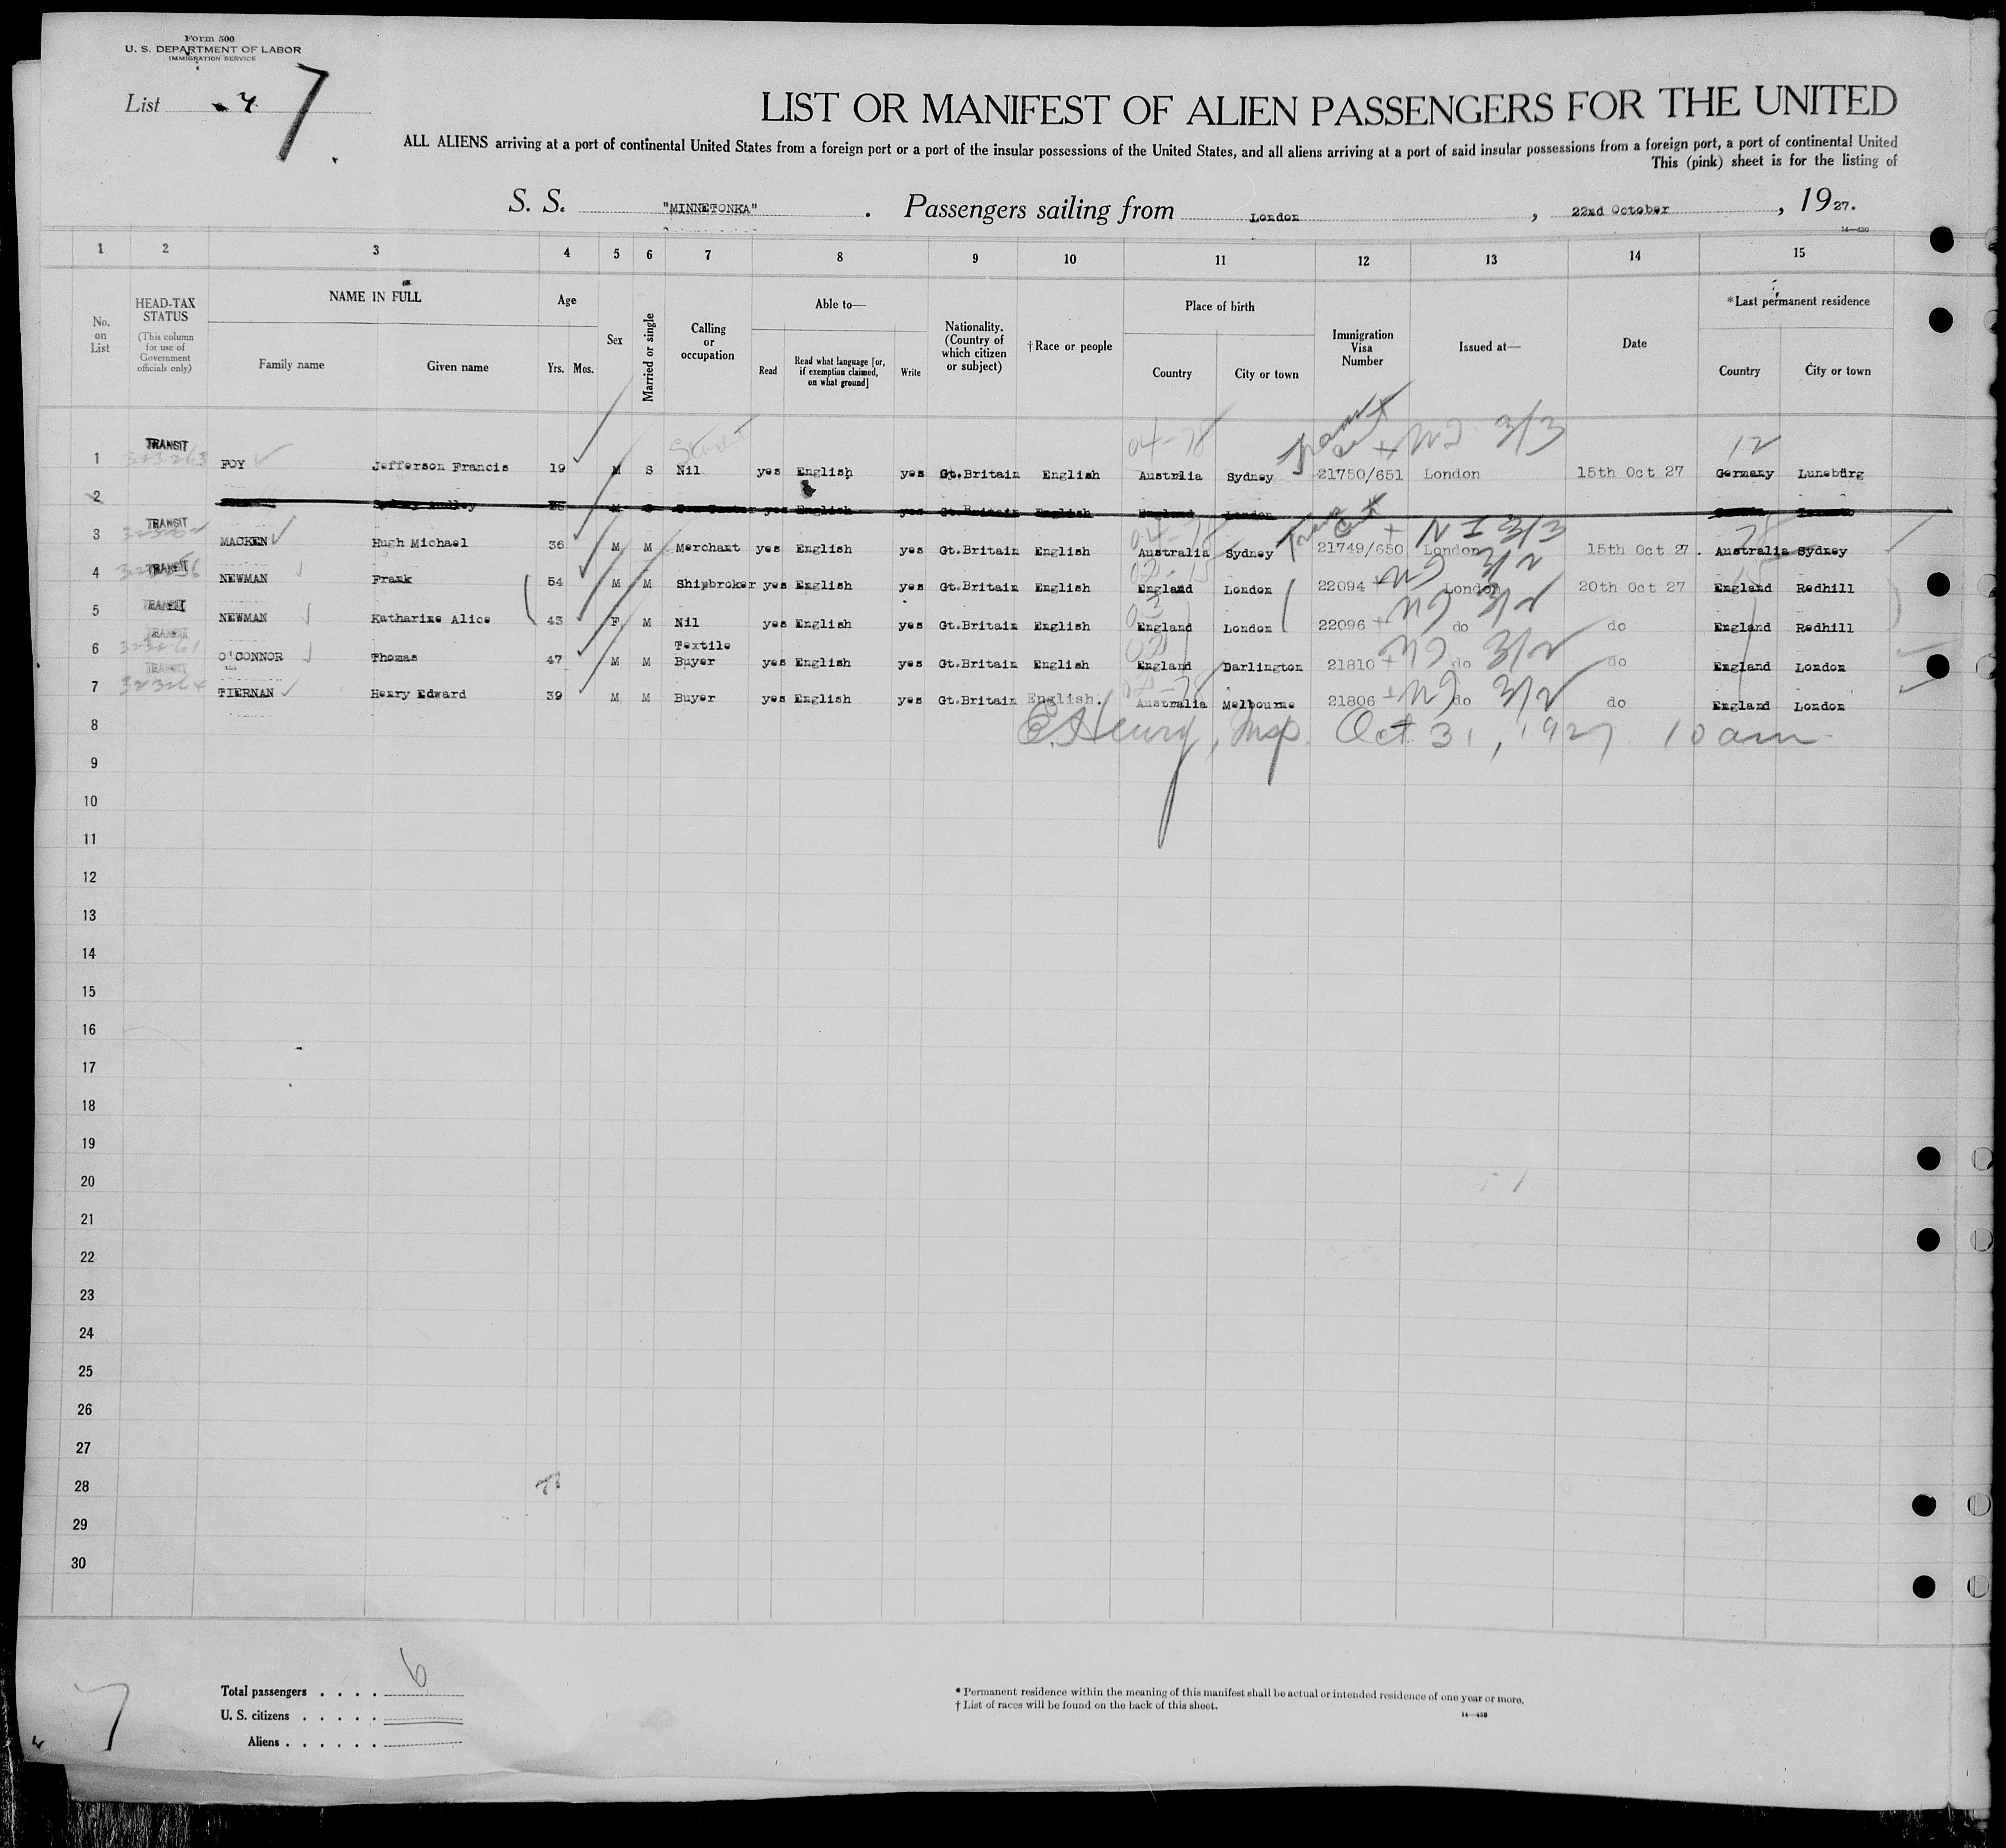 Form 500
U. S. DEPARTMENT OF LABOR
IMMIGRATION SERVICE
List 7
LIST OR MANIFEST OF ALIEN PASSENGERS FOR THE UNITED
ALL ALIENS arriving at a port of continental United States from a foreign port or a port of the insular possessions of the United States, and all aliens arriving at a port of said insular possessions from a foreign port, a port of continental United
This (pink) sheet is for the listing of
S. S. "MINNETONKA" . Passengers sailing from London , 22nd October , 1927.
14—430
1 2 3 4 5 6 7 8 9 10 11 12 13 14 15
No. on List
HEAD-TAX STATUS (This column for use of Government officials only)
NAME IN FULL
Family name Given name
Age
Yrs. Mos.
Sex
Married or single
Calling or occupation
Able to—
Read
Read what language [or, if exemption claimed, on what ground]
Write
Nationality. (Country of which citizen or subject)
†Race or people
Place of birth
Country City or town
Immigration Visa Number
Issued at—
Date
*Last permanent residence
Country City or town
04-78 3/3 12
1 TRANSIT FOY Jefferson Francis 19 M S Nil yes English yes Gt.Britain English Australia Sydney 21750/651 London 15th Oct 27 Germany Luneburg
2 yes English yes Gt.Britain English England London
3 TRANSIT MACKEN Hugh Michael 36 M M Merchant yes English yes Gt.Britain English Australia Sydney 21749/650 London 15th Oct 27. Australia Sydney
4 TRANSIT NEWMAN Frank 54 M M Shipbroker yes English yes Gt.Britain English England London 22094 London 20th Oct 27 England Redhill
5 TRANSIT NEWMAN Katharine Alice 43 F M Nil yes English yes Gt.Britain English England London 22096 do do England Redhill
6 TRANSIT O'CONNOR Thomas 47 M M Textile Buyer yes English yes Gt.Britain English England Darlington 21810 do do England London
7 TRANSIT TIERNAN Henry Edward 39 M M Buyer yes English yes Gt.Britain English. Australia Melbourne 21806 do do England London
8 E. Henry, Insp. Oct 31, 1927 10 am
9
10
11
12
13
14
15
16
17
18
19
20
21
22
23
24
25
26
27
28
29
30
Total passengers . . . . 6
U. S. citizens . . . . .
Aliens . . . . . .
* Permanent residence within the meaning of this manifest shall be actual or intended residence of one year or more.
† List of races will be found on the back of this sheet.
14—430
7